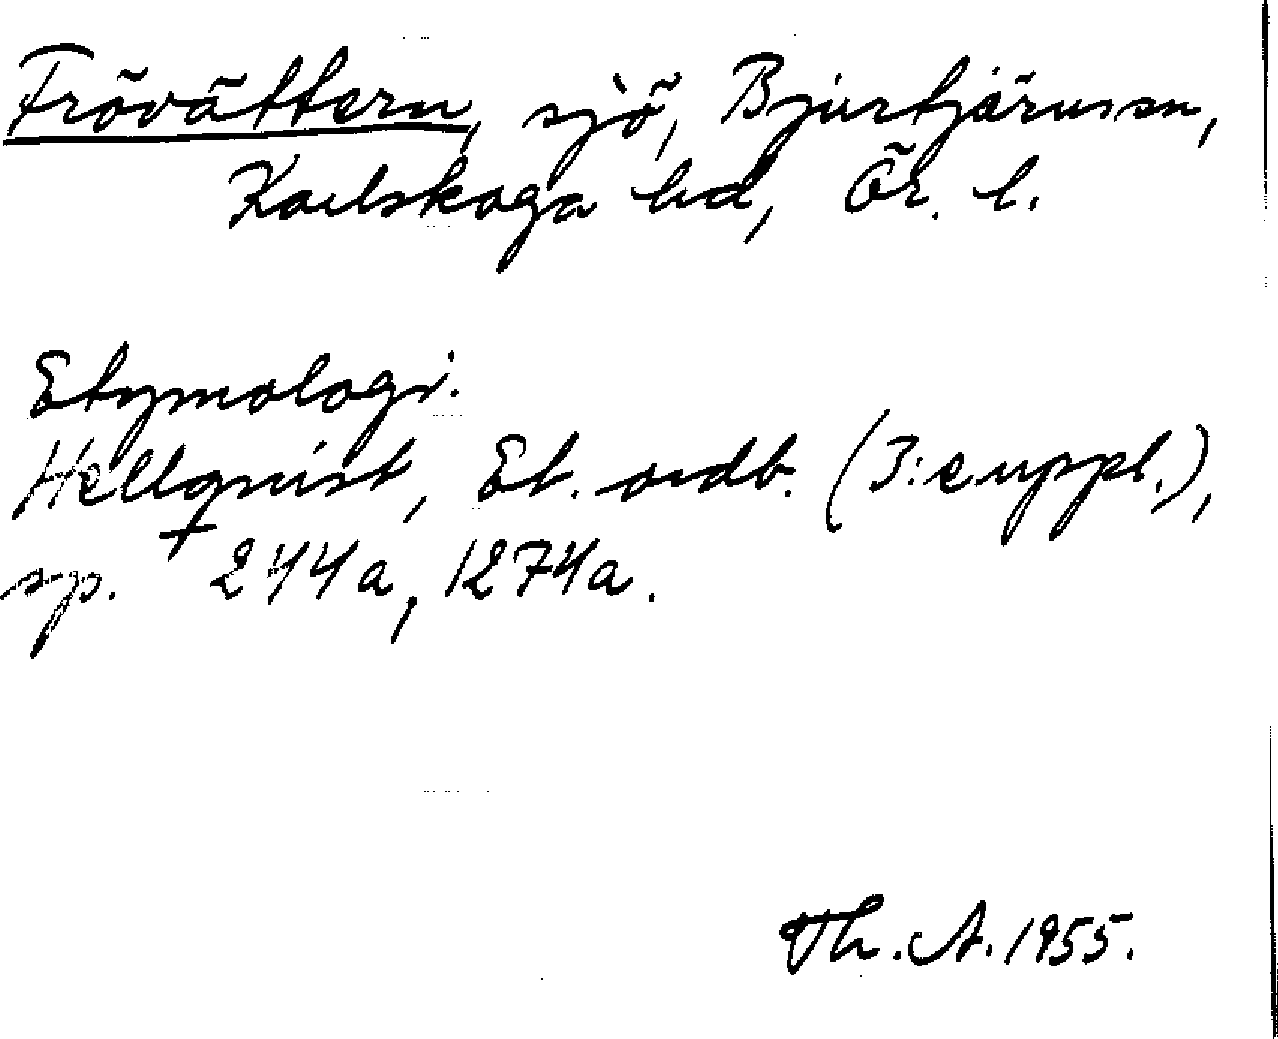 Frövättern, sjö, Bjurtjärns sn,
Karlskoga hd, Ör. l.
Etymologi.
Hellquist, Et. ordb. (3:e uppl.),
sp. 244a, 1274a.
Th. A. 1955.